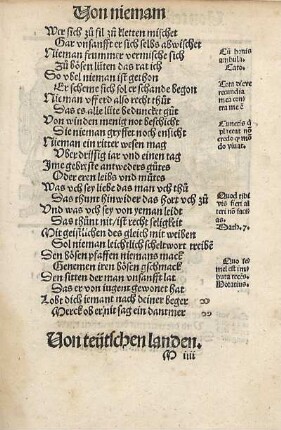 Von niemam
Wer sich zů fil zů kletten mischet
Gar vnsanfft er sich selbs abwischet
Nieman frummer vermische sich
Zů bösen lüten das rat ich
So vbel nieman ist gethon
Er scheme sich sol er schande begon
Nieman vff erd also recht thůt
Das es alle lüte bedunckt gůt
Von winden menig rot beschicht
Die nieman gryffet noch ensicht
Nieman ein ritter wesen mag
Vber drissig iar vnd einen tag
Im gebreste antweders gůtes
Oder eren leibs vnd můtes
Was vch sey liebe das man vch thů
Das thunt hinwider das hort vch zů
Vnd was vch sey von yeman leidt
Das thunt nit/ist recht seligkeit
Mit geistlichen des gleich mit weiben
Sol nieman leichtlich scheltwort treibē
Den bösen pfaffen niemans mack
Genemen iren bösen geschmack
Den sitten der man vnsanfft lat
Das er von iugent gewonet hat
Lobt dich iemant nach deiner beger
Merck ob er nit sag ein dantmer
Cū bonis
ambula.
Cato.
Quod tibi
vis fieri al
teri
facias.
Math. 7.
Quo se
mel est im
Horatius.
Von teütschen landen.
M iiii